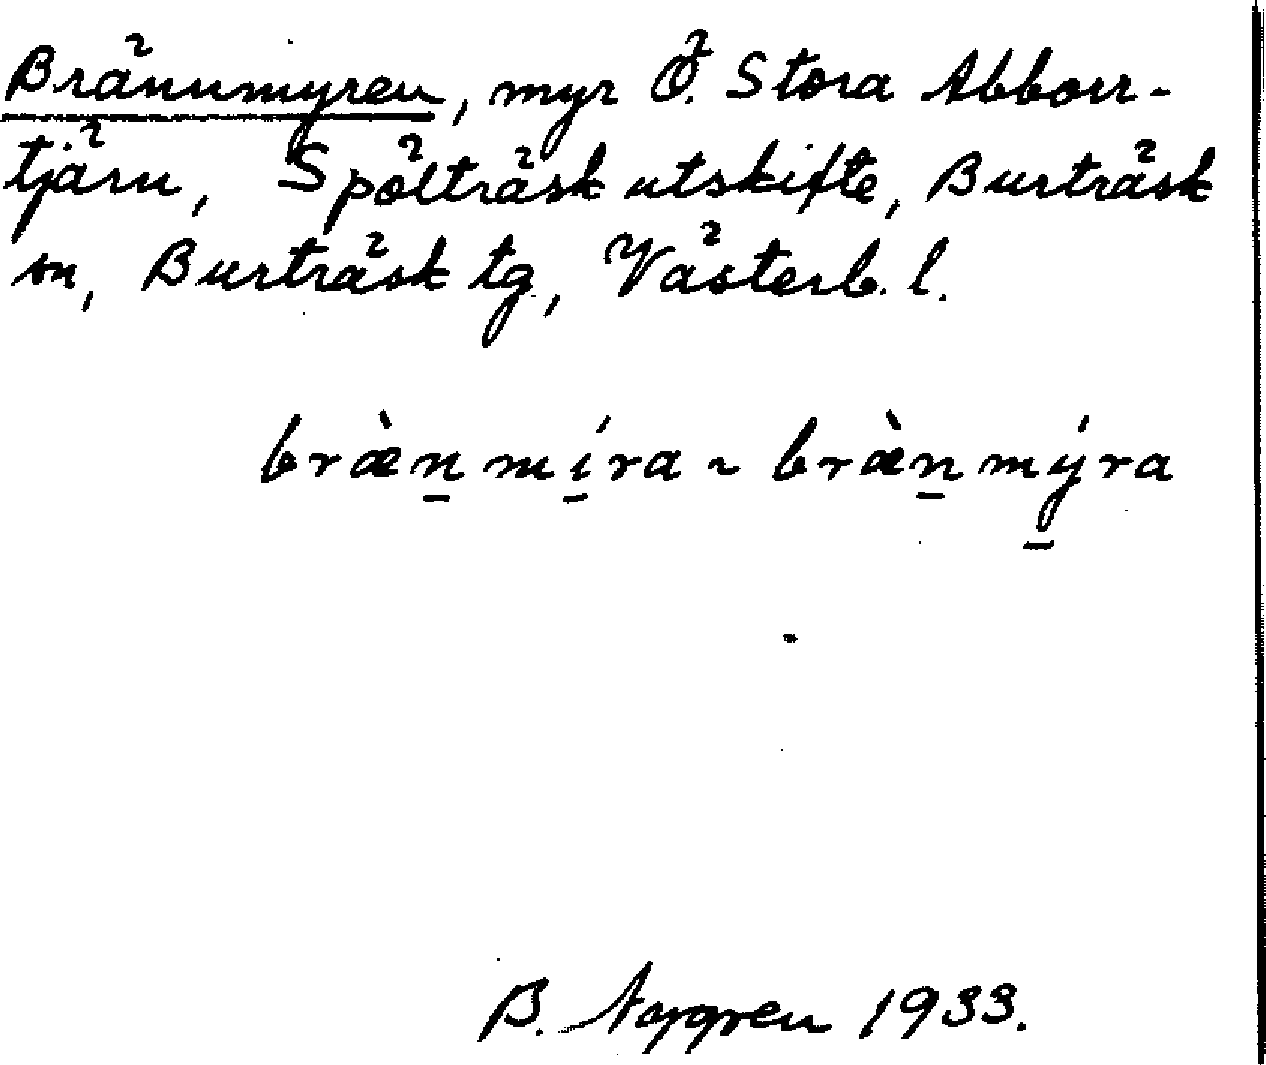 Brännmyren, myr Ö. Stora Abborr-
tjärn, Spölträsk utskifte, Burträsk
sn, Burträsk tg, Västerb. l.
bræ̀n̲mí̲ra ~ bræ̀n̲mý̲ra
B. Nygren 1933.